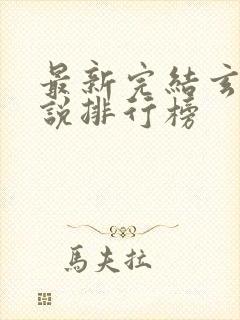 最新完結玄
說排行榜
馬夫拉